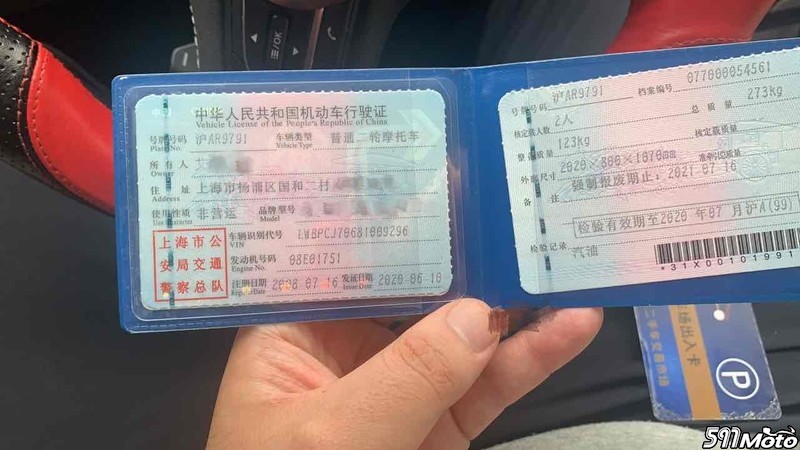 中华人民共和国机动车行驶证
Vehicle License of the People's Republic of China
号牌号码 沪AR9791 车辆类型 普通二轮摩托车
Plate No. Vehicle Type
所有人
Owner
住址 上海市杨浦区国和二村
Address
使用性质 非营运 品牌型号
Use Character Model
上海市公
安局交通
警察总队
车辆识别代号
VIN LWBPCJ70681009296
发动机号码 08E01751
Engine No.
注册日期 2008-07-16 发证日期 2020-06-10
Register Date Issue Date
号牌号码 沪AR9791 档案编号 077000054561
核定载人数 2人 总质量 273kg
整备质量 123kg 核定载质量
外廓尺寸 2020×800×1070mm 准牵引总质量
备注 强制报废期止:2021-07-16
检验有效期至2020年07月沪A(99)
检验记录
汽油
*31X00101991
场出入卡
二手车交易市场
P
≡/OK
591Moto